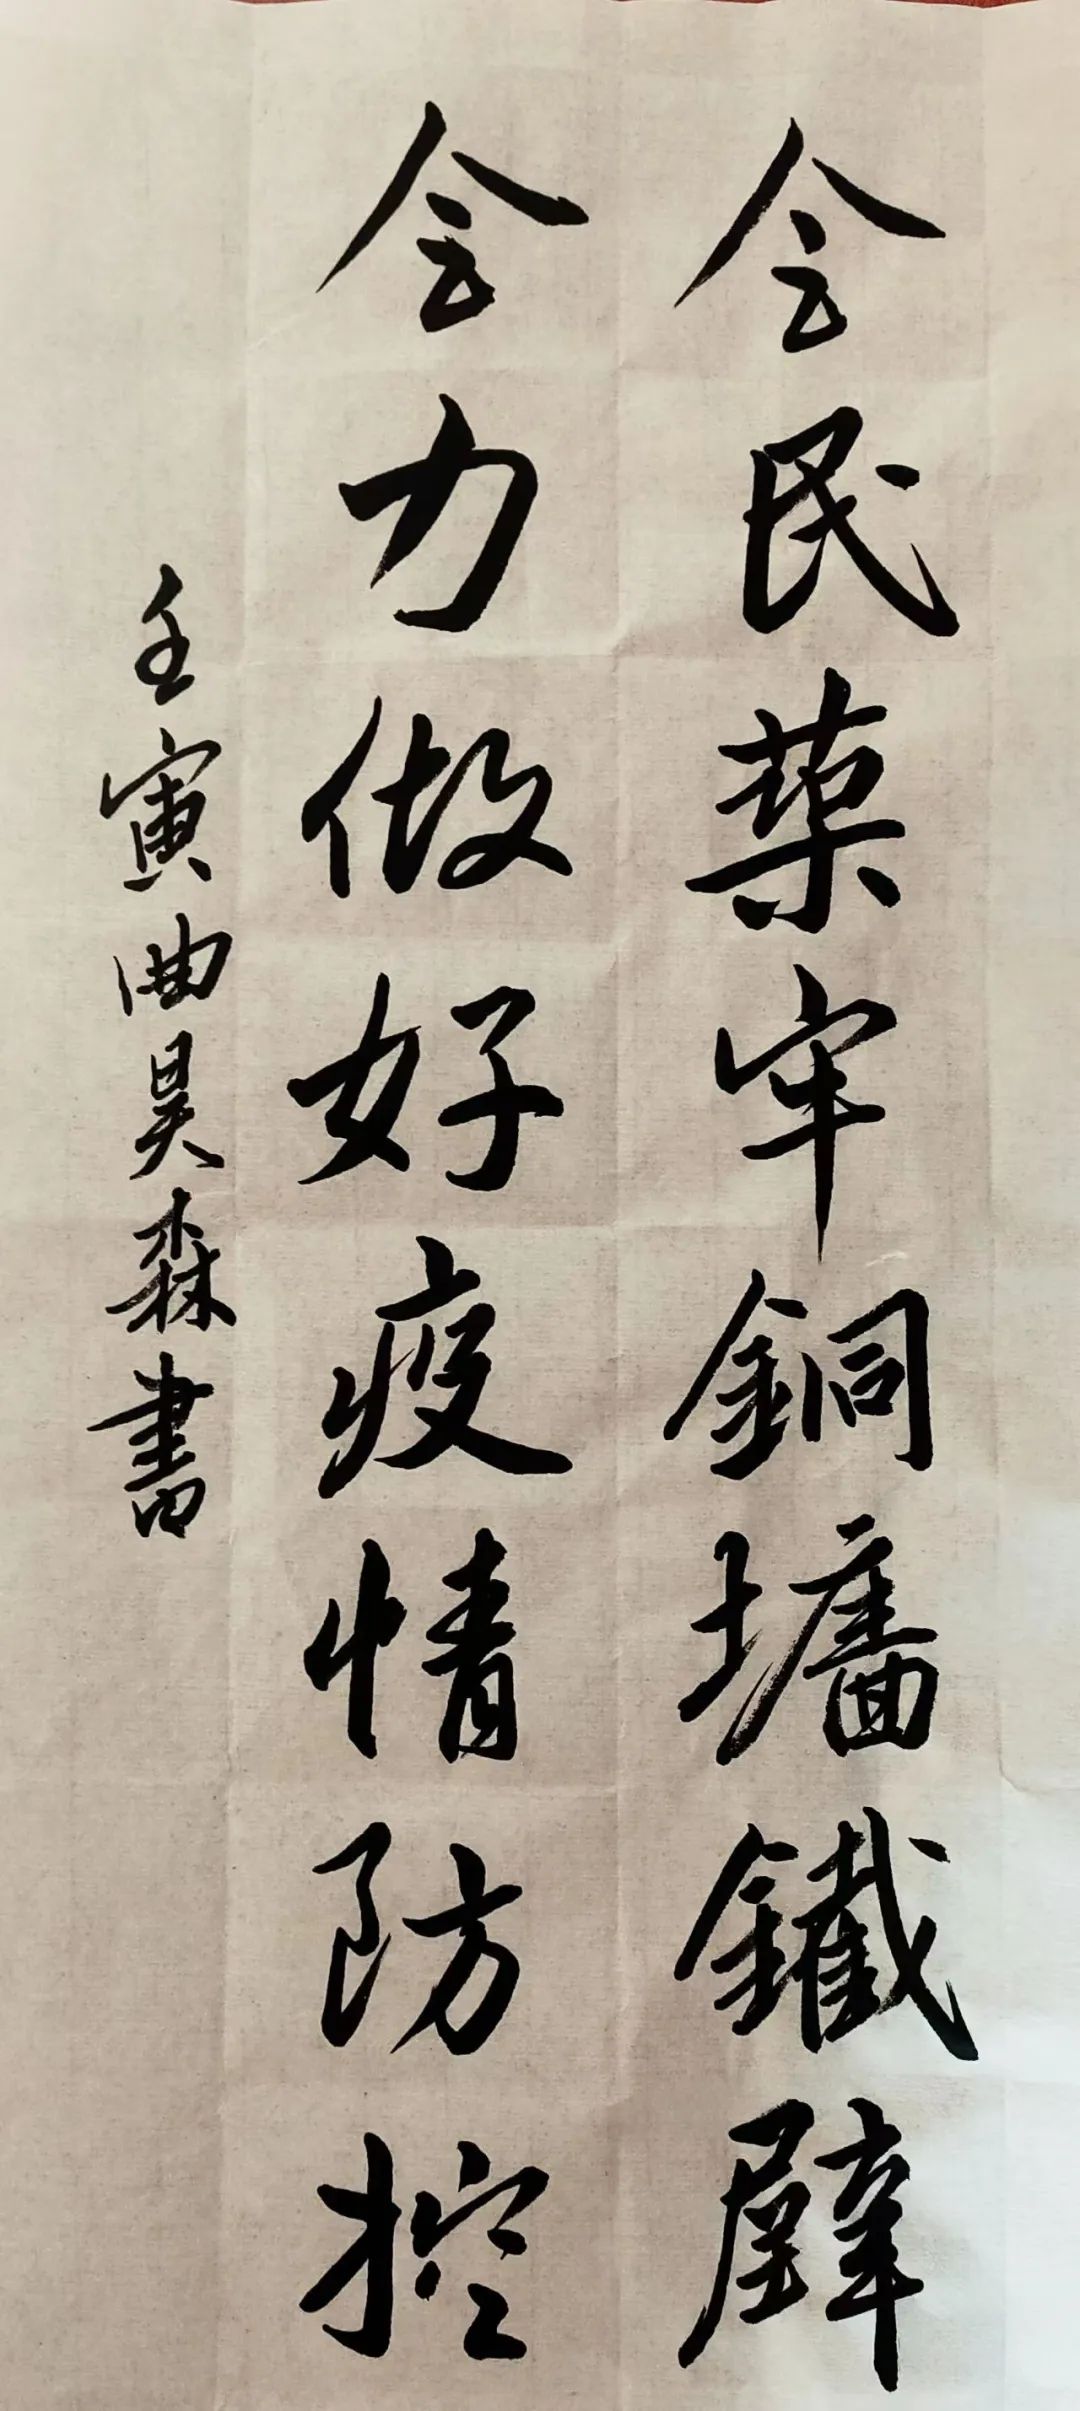 全民築牢銅墻鐵壁
全力做好疫情防控
壬寅曲昊森書